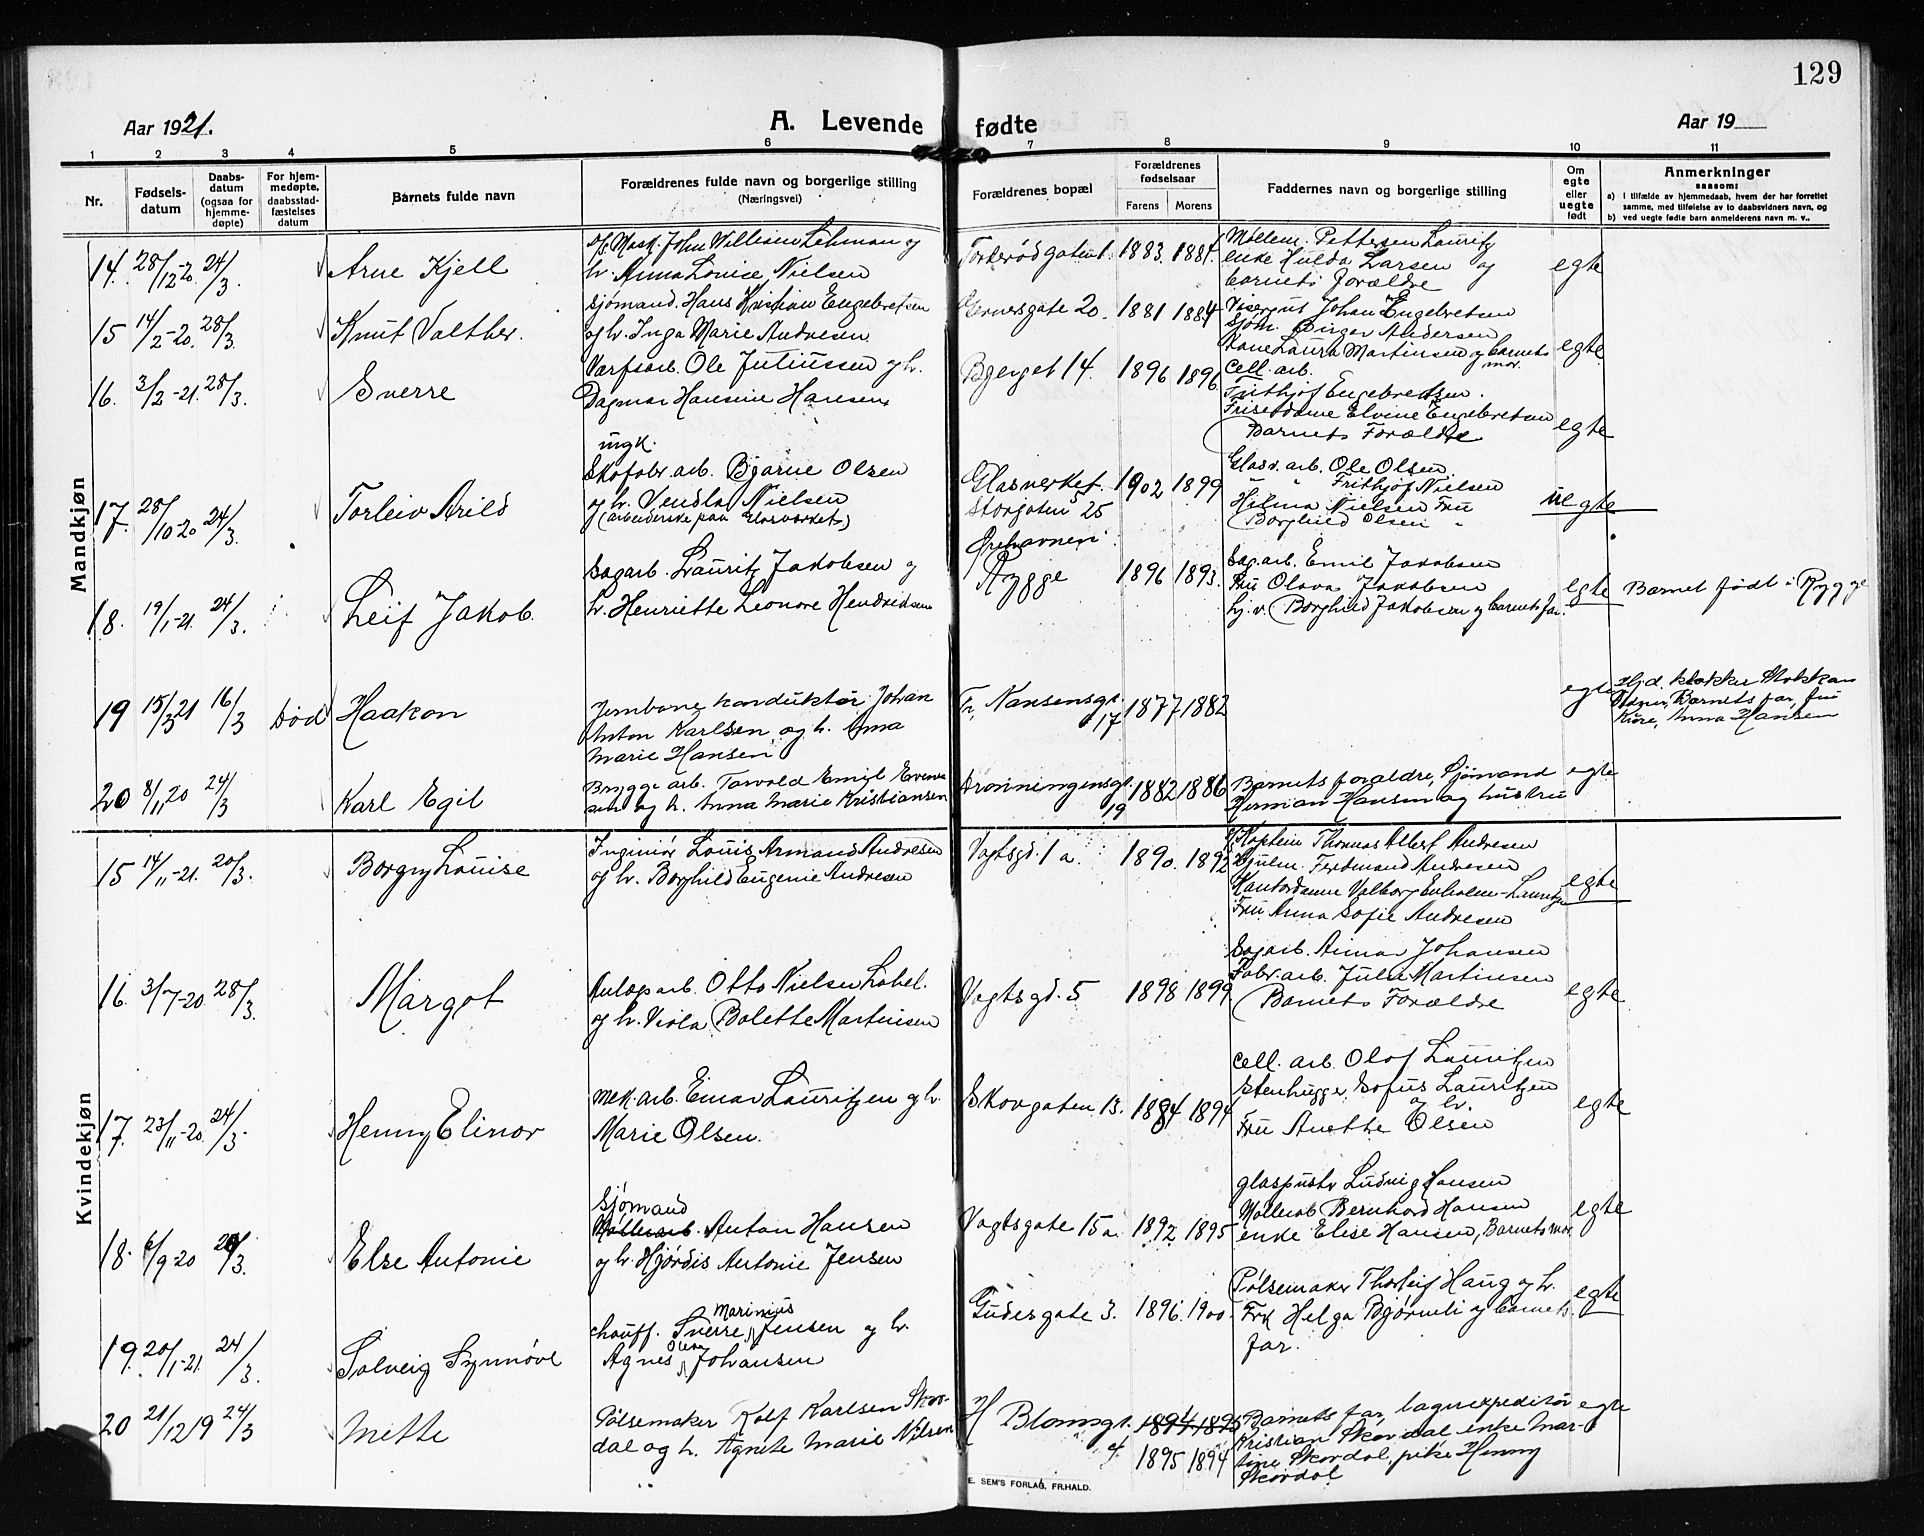 129
Aar 1921.
A. Levende fødte
Aar 19
1 2 3 4 5 6 7 8 9 10 11
Nr.
Fødsels-
datum
Daabs-
datum
(ogsaa for
hjemme-
døpte)
For hjem-
medøpte,
daabsstad-
fæstelses
datum
Barnets fulde navn
Forældrenes fulde navn og borgerlige stilling
(Næringsvei)
Forældrenes bopæl
Forældrenes
fødselsaar
Farens Morens
Faddernes navn og borgerlige stilling
Om
egte
eller
uegte
født
Anmerkninger
saasom:
a) I tilfælde av hjemmedaab, hvem der har forrettet
samme, med tilføielse av to daabsvidners navn, og
b) ved uegte fødte barn anmelderens navn m. v.,
Mandkjøn
14. 28/12-20 24/3. Arne Kjell
Mask. John William Lehman og
h. Anna Louise Nielsen
Torderødgaten 1. 1883. 1884.
Møllem. Pettersen Lauritz
enke Hulda Larsen og
barnets forældre
egte
15 14/2-20. 28/3. Knut Valther.
Sjømand. Hans Kristian Engebretsen
og h. Inga Marie Andresen
gate 20. 1881 1884
Visergut Johan Engebretsen
Sjøm. Birger Andersen
Kone Laura Martinsen og barnets
mor.
egte
16. 3/2-21. 28/3. Sverre
Varfsarb. Ole Juliussen og h.
Dagmar Hansine Hansen
Bjerget 14. 1896 1896
Cell. arb.
Frithjof Engebretsen.
Frisetdame Elvine Engebretsen
Barnets Forældre
egte
17. 28/10-20 24/3. Torleiv Arild
ungk.
Skofabr arb. Bjarne Olsen
og h. Vendla Nielsen
(arbeiderske paa Glasverket)
Glasverket.
Storgaten 25
1902 1899
Glasv. arb. Ole Olsen
" " Frithjof Nielsen
Helma Nielsen Fru
Borghild Olsen "
uegte
18. 19/1-21. 24/3. Leif Jakob.
Sagarb. Lauritz Jakobsen og
h. Henriette Leonore Hendriksen
Ørehavnen
Rygge
1896 1893.
Sag.arb. Emil Jakobsen
Fru Olava Jakobsen
hj.v. Borghild Jakobsen og barnets far.
egte
Barnet født i Rygge
19 15/3 21 16/3 Død Haakon
Jernbane konduktør Johan
Anton Karlsen og h. Anna
Marie Hansen
Fr. Nansensgt.
17
1877 1882
egte
Hj.d. klokker
Barnets far, fru
Anna Hansen
20 8/11 20 24/3 Karl Egil
Brygge arb. Torvald Emil Evensen
og h. Anna Marie Kristiansen
Dronningensgt.
19
1882 1886
Barnets forældre, sjømand
Herman Hansen og hustru
egte
Kvindekjøn
15 14/11-21. 20/3. Borgny Louise
Ingeniør Louis Armand Andresen
og h. Borghild Eugenie Andresen
Vogtsgd. 1 a. 1890. 1892
Kaptein Thomas Albert Andresen
Ferdinand Andresen
Kontordame Valborg Enholm-Lauritzen
Fru Anna Sofie Andresen
egte
16. 3/7-20. 28/3. Margot
arb. Otto Nielsen Løbel.
og h. Viola Bolette Martinsen
Vogtsgd. 5 1898 1899
Sagarb. Johansen
Fabr. arb. Julie Martinsen
Barnets Forældre
egte
17. 23/11-20. 24/3. Henny Elinor
mek. arb. Einar Lauritzen og h.
Marie Olsen.
Skovgaten 13. 1894 1894
Cell. arb. Olof Lauritzen
Stenhugger Sofus Lauritzen
og h.
Fru Anette Olsen
egte
18. 6/9-20 /3. Else Antonie
Sjømand
Møllearb. Anton Hansen
og h. Hjørdis Antonie Jensen
Vogtsgate 15 a. 1892 1895
glaspuster Ludvig Hansen
Møllerab Bernhard Hansen
enke Elise Hansen, Barnets mor
egte
19. 20/1-21. 24/3. Solveig Synnøve
chauff. Sverre Marinius Jensen og h.
Agnes Johansen
Gudesgate 3. 1896. 1900.
Pølsemaker Thorleif Haug og h.
Frk Helga Bjørneli og barnets
far.
egte
20 21/12 19 24/3 Mette
Pølsemaker Rolf Karlsen Skov-
dal og h. Agnete Marie Nilsen
H Blomsgt.
4.
1894 1893
1895 1894
Barnets far, lagerexpeditør
Kristian Skovdal enke Mar-
tine Skovdal, pike Henny
Skovdal
egte
E. SEM'S FORLAG, FR.HALD.